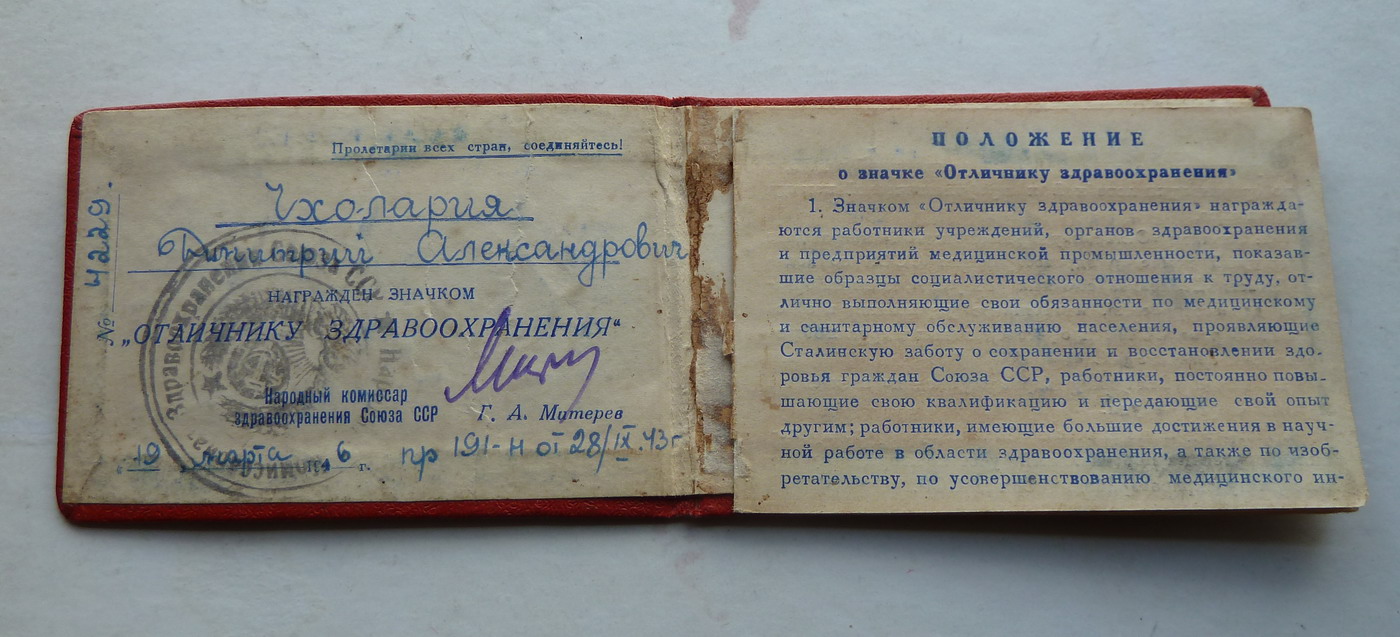 Пролетарии всех стран, соединяйтесь!
№ 4229.
Чхолария
Димитрий Александрович
НАГРАЖДЕН ЗНАЧКОМ
„ОТЛИЧНИКУ ЗДРАВООХРАНЕНИЯ“
Народный комиссар
здравоохранения Союза ССР Г. А. Митерев
„19 марта 1946 г. пр 191-н от 28/IX.43г
ПОЛОЖЕНИЕ
о значке «Отличнику здравоохранения»
1. Значком «Отличнику здравоохранения» награжда-
ются работники учреждений, органов здравоохранения
и предприятий медицинской промышленности, показав-
шие образцы социалистического отношения к труду, от-
лично выполняющие свои обязанности по медицинскому
и санитарному обслуживанию населения, проявляющие
Сталинскую заботу о сохранении и восстановлении здо-
ровья граждан Союза ССР, работники, постоянно повы-
шающие свою квалификацию и передающие свой опыт
другим; работники, имеющие большие достижения в науч-
ной работе в области здравоохранения, а также по изоб-
ретательству, по усовершенствованию медицинского ин-